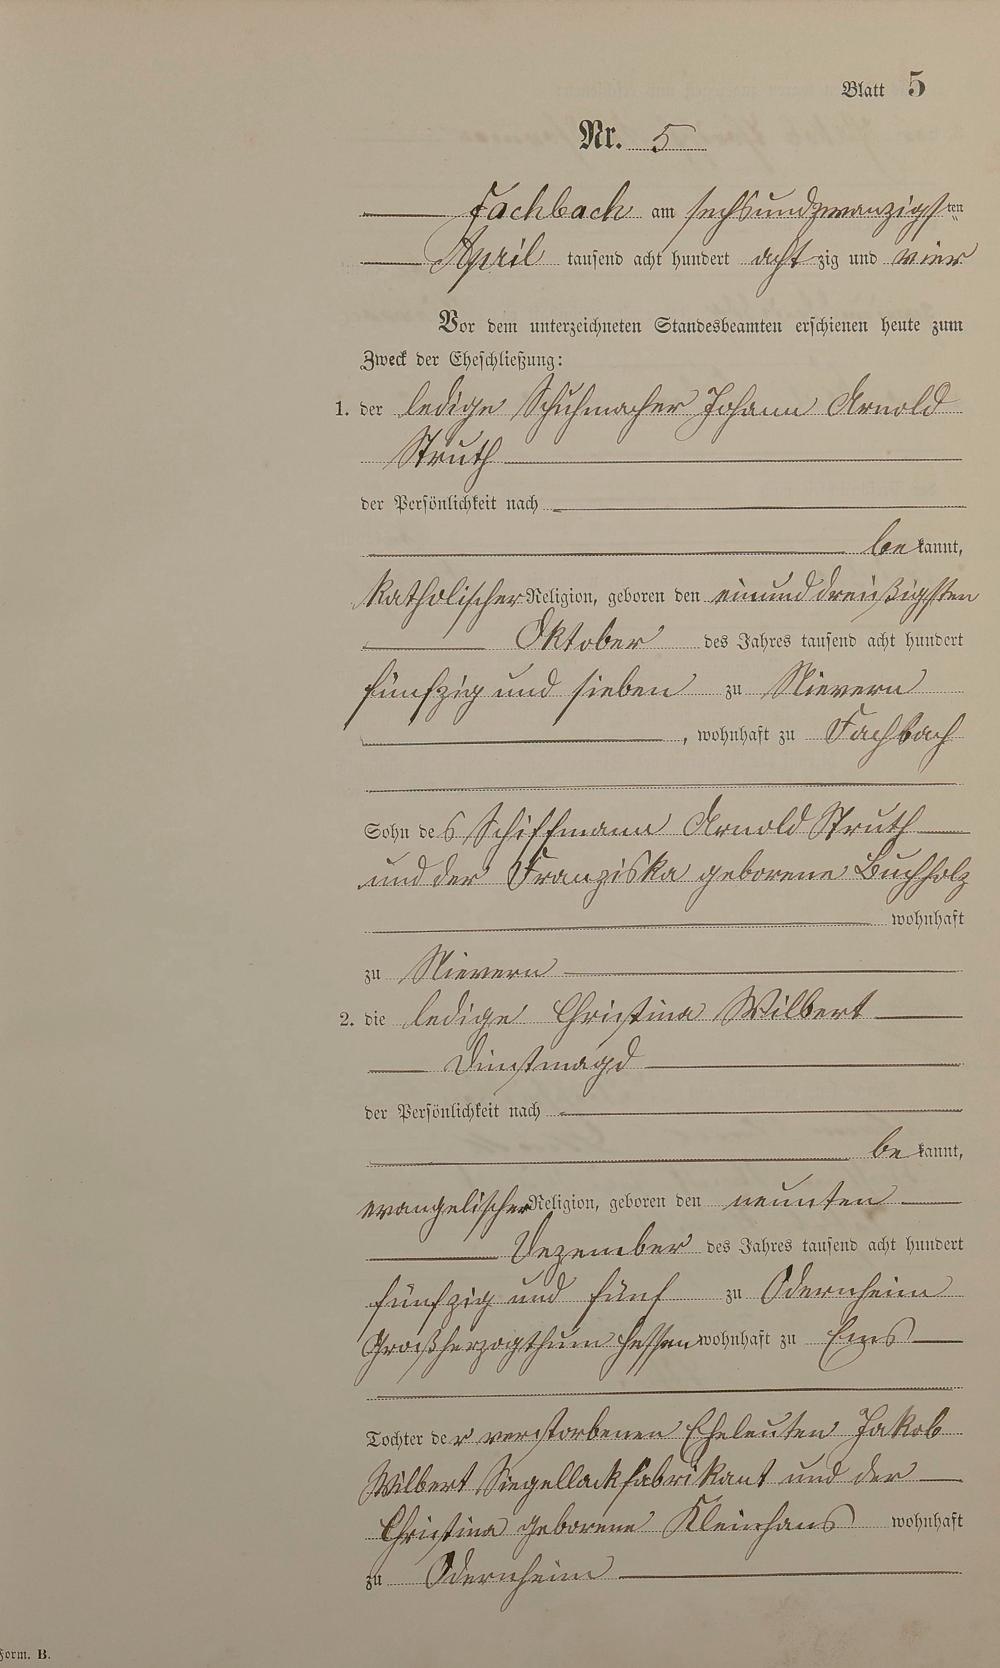 Blatt 5
Nr. 5
Fachbach am sechsundzwanzigsten
April tausend acht hundert achtzig und vier
Vor dem unterzeichneten Standesbeamten erschienen heute zum
Zweck der Eheschließung:
1. der ledige Schuhmacher Johann Arnold
Struth
der Persönlichkeit nach
bekannt,
katholischer Religion, geboren den einunddreißigsten
Oktober des Jahres tausend acht hundert
fünfzig und sieben zu Nievern
, wohnhaft zu Fachbach
Sohn des Schiffmann Arnold Struth
und der Franziska geborene Buchholz
wohnhaft
zu Nievern
2. die ledige Christina Wilbert
Dinstmagd
der Persönlichkeit nach
bekannt,
evangelischer Religion, geboren den neunten
Dezember des Jahres tausend acht hundert
fünfzig und fünf zu Odernheim
Großherzogthum Hessen wohnhaft zu Ems
Tochter der verstorbenen Eheleuten Jakob
Wilbert Siegellackfabrikant und der
Christina geborene Kleinhans wohnhaft
zu Odernheim
Form. B.